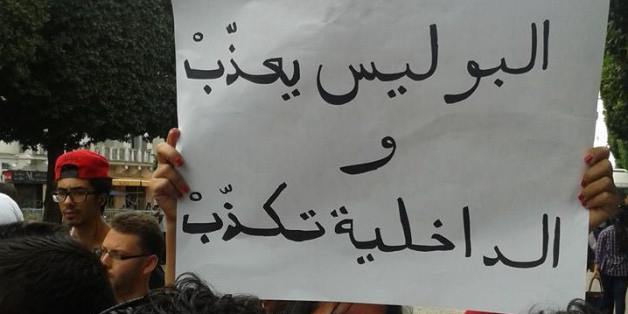 البوليس يعذّبْ
و
الداخلية تكذّبْ